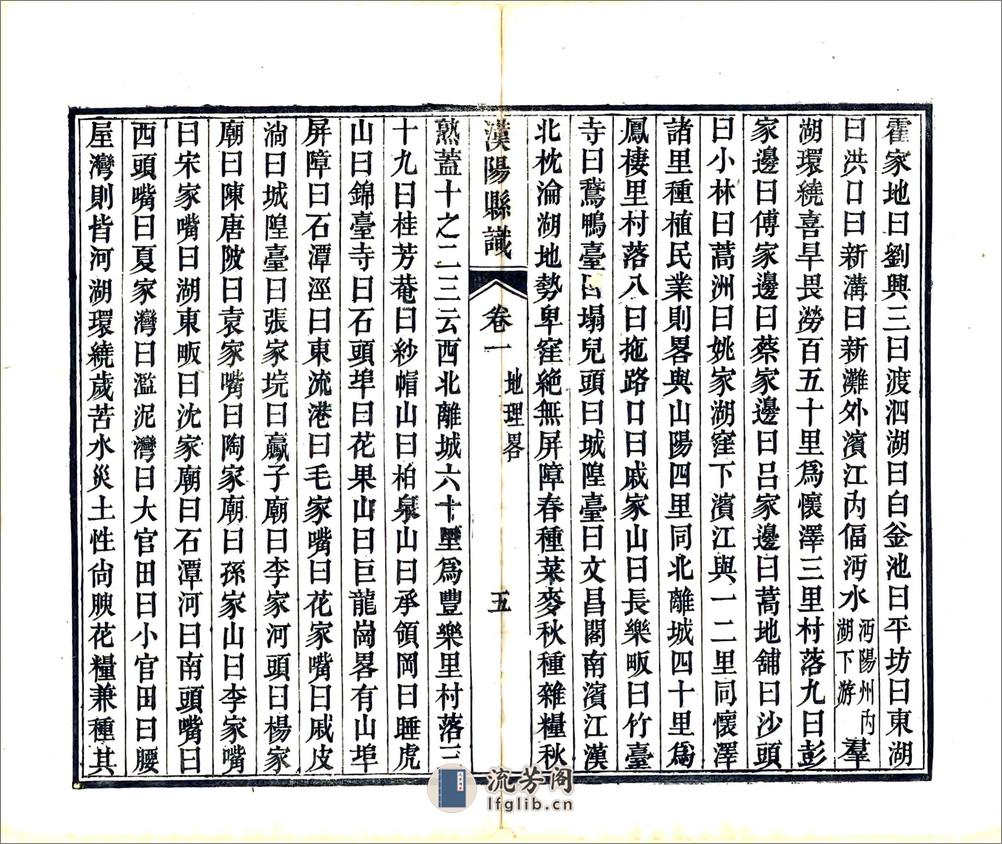 霍家地曰劉興三曰渡泗湖曰白釜池曰平坊曰東湖
曰洪口曰新溝曰新灘外濱江內偪沔水沔陽州內湖下游羣
湖環繞喜旱畏澇百五十里爲懷澤三里村落九曰彭
家邊曰傅家邊曰蔡家邊曰呂家邊曰蒿地舖曰沙頭
曰小林曰蒿洲曰姚家湖窪下濱江與一二里同懷澤
諸里種植民業則畧與山陽四里同北離城四十里爲
鳳棲里村落八曰拖路口曰戚家山曰長樂畈曰竹臺
寺曰鵞鴨臺曰塌兒頭曰城隍臺曰文昌閣南濱江漢
北枕淪湖地勢卑窪絶無屏障春種菜麥秋種雜糧秋
漢陽縣識 卷一 地理畧 五
熟蓋十之二三云西北離城六十里爲豐樂里村落三
十九曰桂芳菴曰紗帽山曰柏泉山曰承領岡曰睡虎
山曰錦臺寺曰石頭埠曰花果山曰巨龍崗畧有山埠
屏障曰石潭涇曰東流港曰毛家嘴曰花家嘴曰戚皮
淌曰城隍臺曰張家垸曰蠃子廟曰李家河頭曰楊家
廟曰陳唐陂曰袁家嘴曰陶家廟曰孫家山曰李家嘴
曰宋家嘴曰湖東畈曰沈家廟曰石潭河曰南頭嘴曰
西頭嘴曰夏家灣曰滥泥灣曰大官田曰小官田曰腰
屋灣則皆河湖環繞歲苦水災土性尙腴花糧兼種其
流芳阁
lfglib.cn